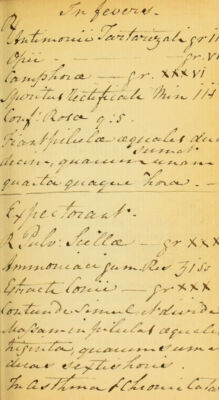 In fevers.
℞
Antimonii Tartarizati gr II
Opii — gr. VI
Camphoræ — gr. XXXVI
Spiritus Rectificati Min III
Conf: Rosæ q: s.
Fiant pilulæ æquales duo
decim, quarum unam sumat
quarta quaque hora —
Expectorant.
℞ Pulv: Scillæ — gr XXX
Ammoniaci gum Res ʒiss
Extracti Conii — gr XXX
Contunde Simul et divide
Massam in pilulas æquales
triginta, quarum sumat
duas sextis horis.
In Asthma & Chronic